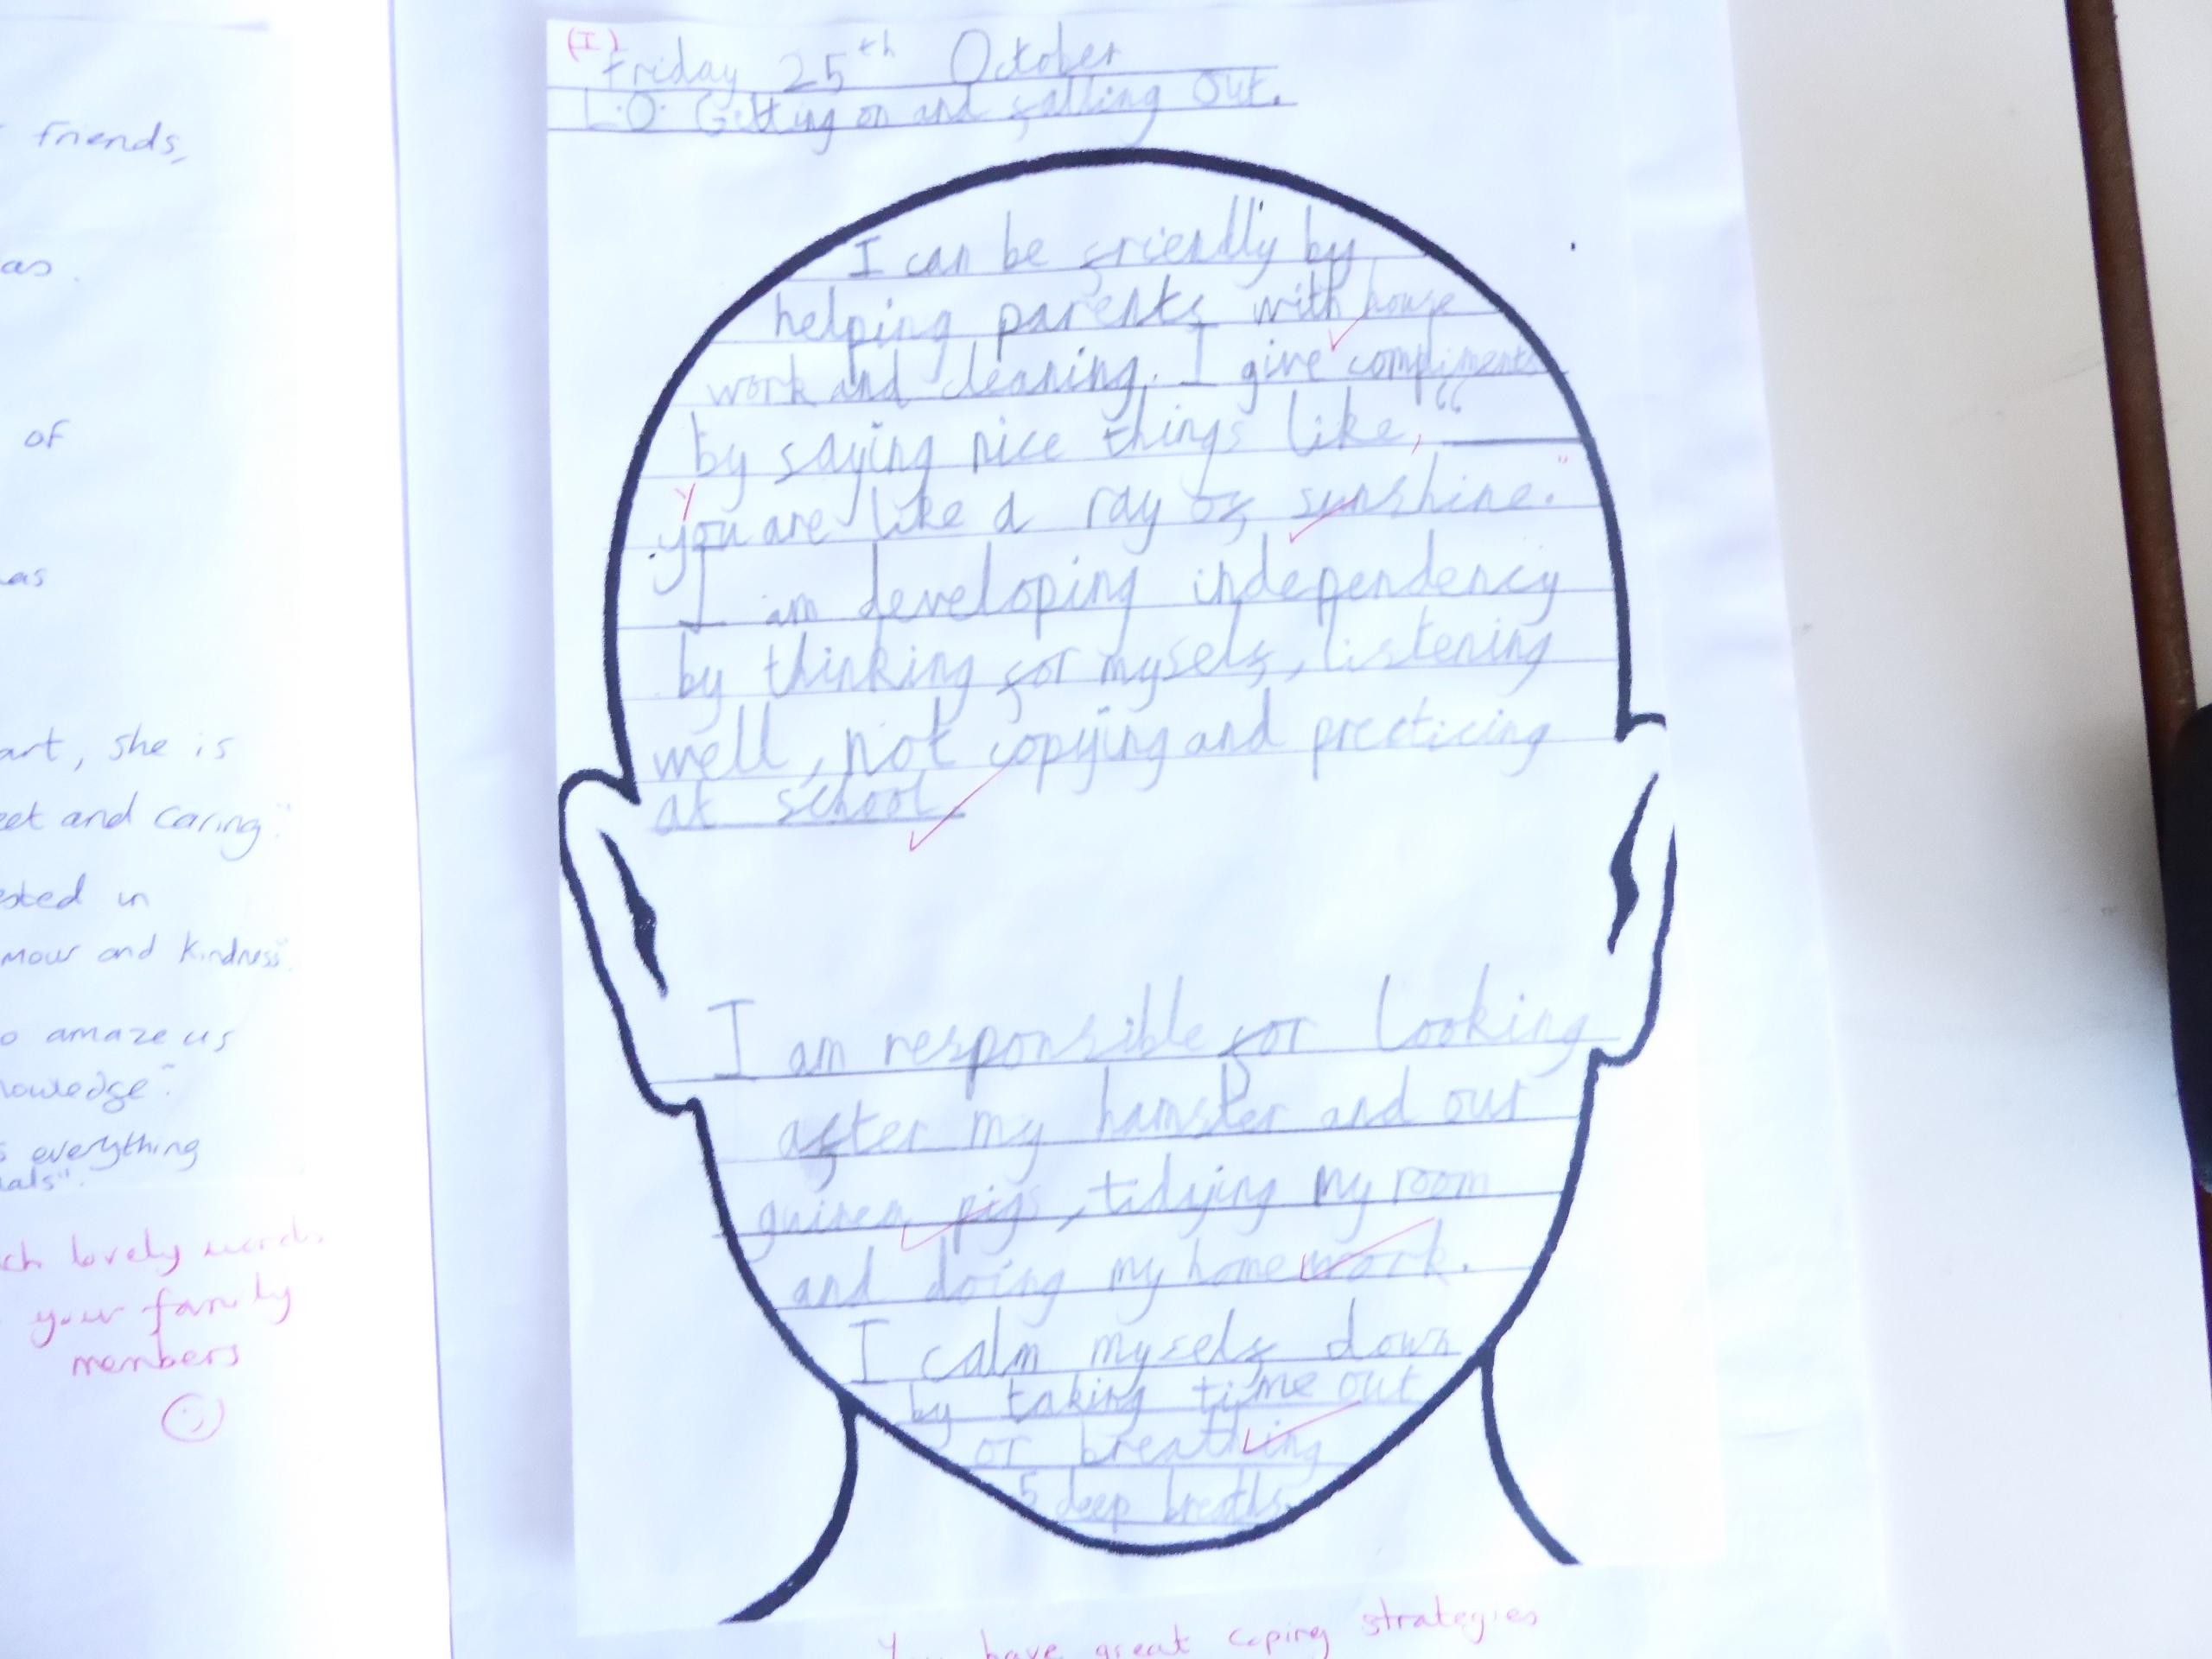 friends,
as.
of
as
art, she is
eet and caring."
ested in
mour and kindness".
o amaze us
nowledge".
s everything
als".
ch lovely words.
your family
members
(I)
Friday 25th October
L.O. Getting on and falling out.
I can be friendly by
helping parents with house
work and cleaning. I give compliments
by saying nice things like, "
you are like a ray of sunshine."
I am developing independency
by thinking for myself, listening
well, not copying and precticing
at school
I am responsible for looking
after my hamster and our
guinea pigs, tidying my room
and doing my homework.
I calm myself down
by taking time out
or breathing
5 deep breaths.
You have great coping strategies